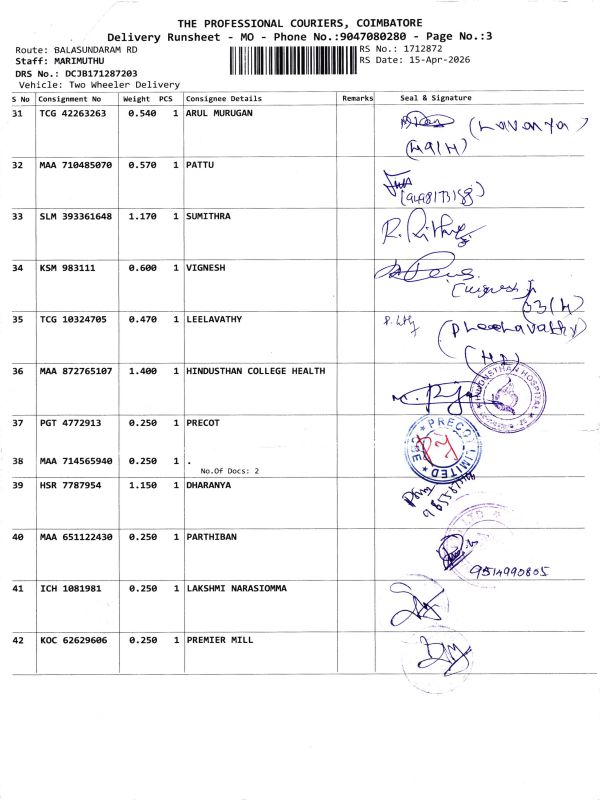 THE PROFESSIONAL COURIERS, COIMBATORE
Delivery Runsheet - MO - Phone No.:9047080280 - Page No.:3
Route: BALASUNDARAM RD RS No.: 1712872
Staff: MARIMUTHU RS Date: 15-Apr-2026
DRS No.: DCJB171287203
Vehicle: Two Wheeler Delivery
S No Consignment No Weight PCS Consignee Details Remarks Seal & Signature
31 TCG 42263263 0.540 1 ARUL MURUGAN (Lavanya)
32 MAA 710485070 0.570 1 PATTU
33 SLM 393361648 1.170 1 SUMITHRA
34 KSM 983111 0.600 1 VIGNESH
35 TCG 10324705 0.470 1 LEELAVATHY
36 MAA 872765107 1.400 1 HINDUSTHAN COLLEGE HEALTH
HINDUSTHAN HOSPITAL
37 PGT 4772913 0.250 1 PRECOT
PRECOT LIMITED
38 MAA 714565940 0.250 1 .
No.Of Docs: 2
39 HSR 7787954 1.150 1 DHARANYA
40 MAA 651122430 0.250 1 PARTHIBAN
9514990805
41 ICH 1081981 0.250 1 LAKSHMI NARASIOMMA
42 KOC 62629606 0.250 1 PREMIER MILL